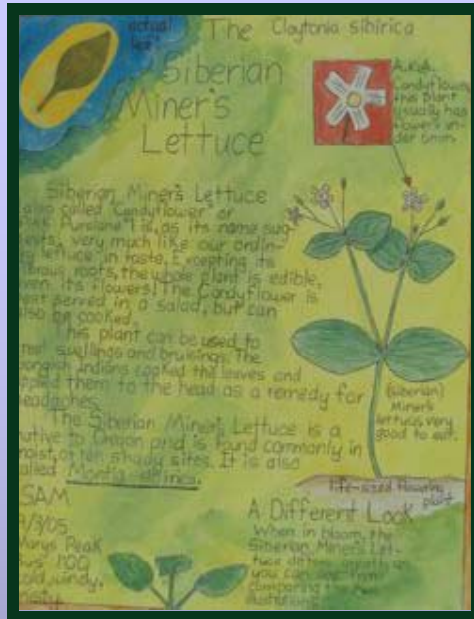 actual
leaf!
The Claytonia sibirica
Siberian
Miner's
Lettuce
A.K.A.
Candyflower,
this plant
usually has
flowers in
Siberian Miner's Lettuce
also called "Candyflower" or
as its name sug-
very much like our ordin-
lettuce in taste. Excepting its
roots, the whole plant is edible,
even its flowers! The Candyflower is
best served in a salad, but can
also be cooked.
This plant can be used to
swellings and bruisings. The
Indians cooked the leaves and
applied them to the head as a remedy for
headaches.
The Siberian Miner's Lettuce is a
native to Oregon and is found commonly in
moist, often shady sites. It is also
called Montia
(siberian)
Miner's
lettuce very
good to eat.
life-sized flowering
plant
SAM
/05
Marys Peak
windy,
A Different Look
When in bloom, the
Siberian Miner's Let-
tuce
you can see from
comparing the two
illustrations.